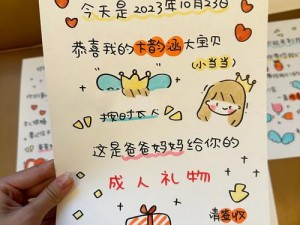 今天是2023年10月23日
恭喜我的卞韵涵大宝贝
(小当当)
按时长人
这是爸爸妈妈给你的
成人礼物
请签收